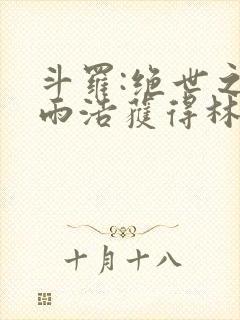 斗羅:绝世之
雨浩獲得林
十月十八